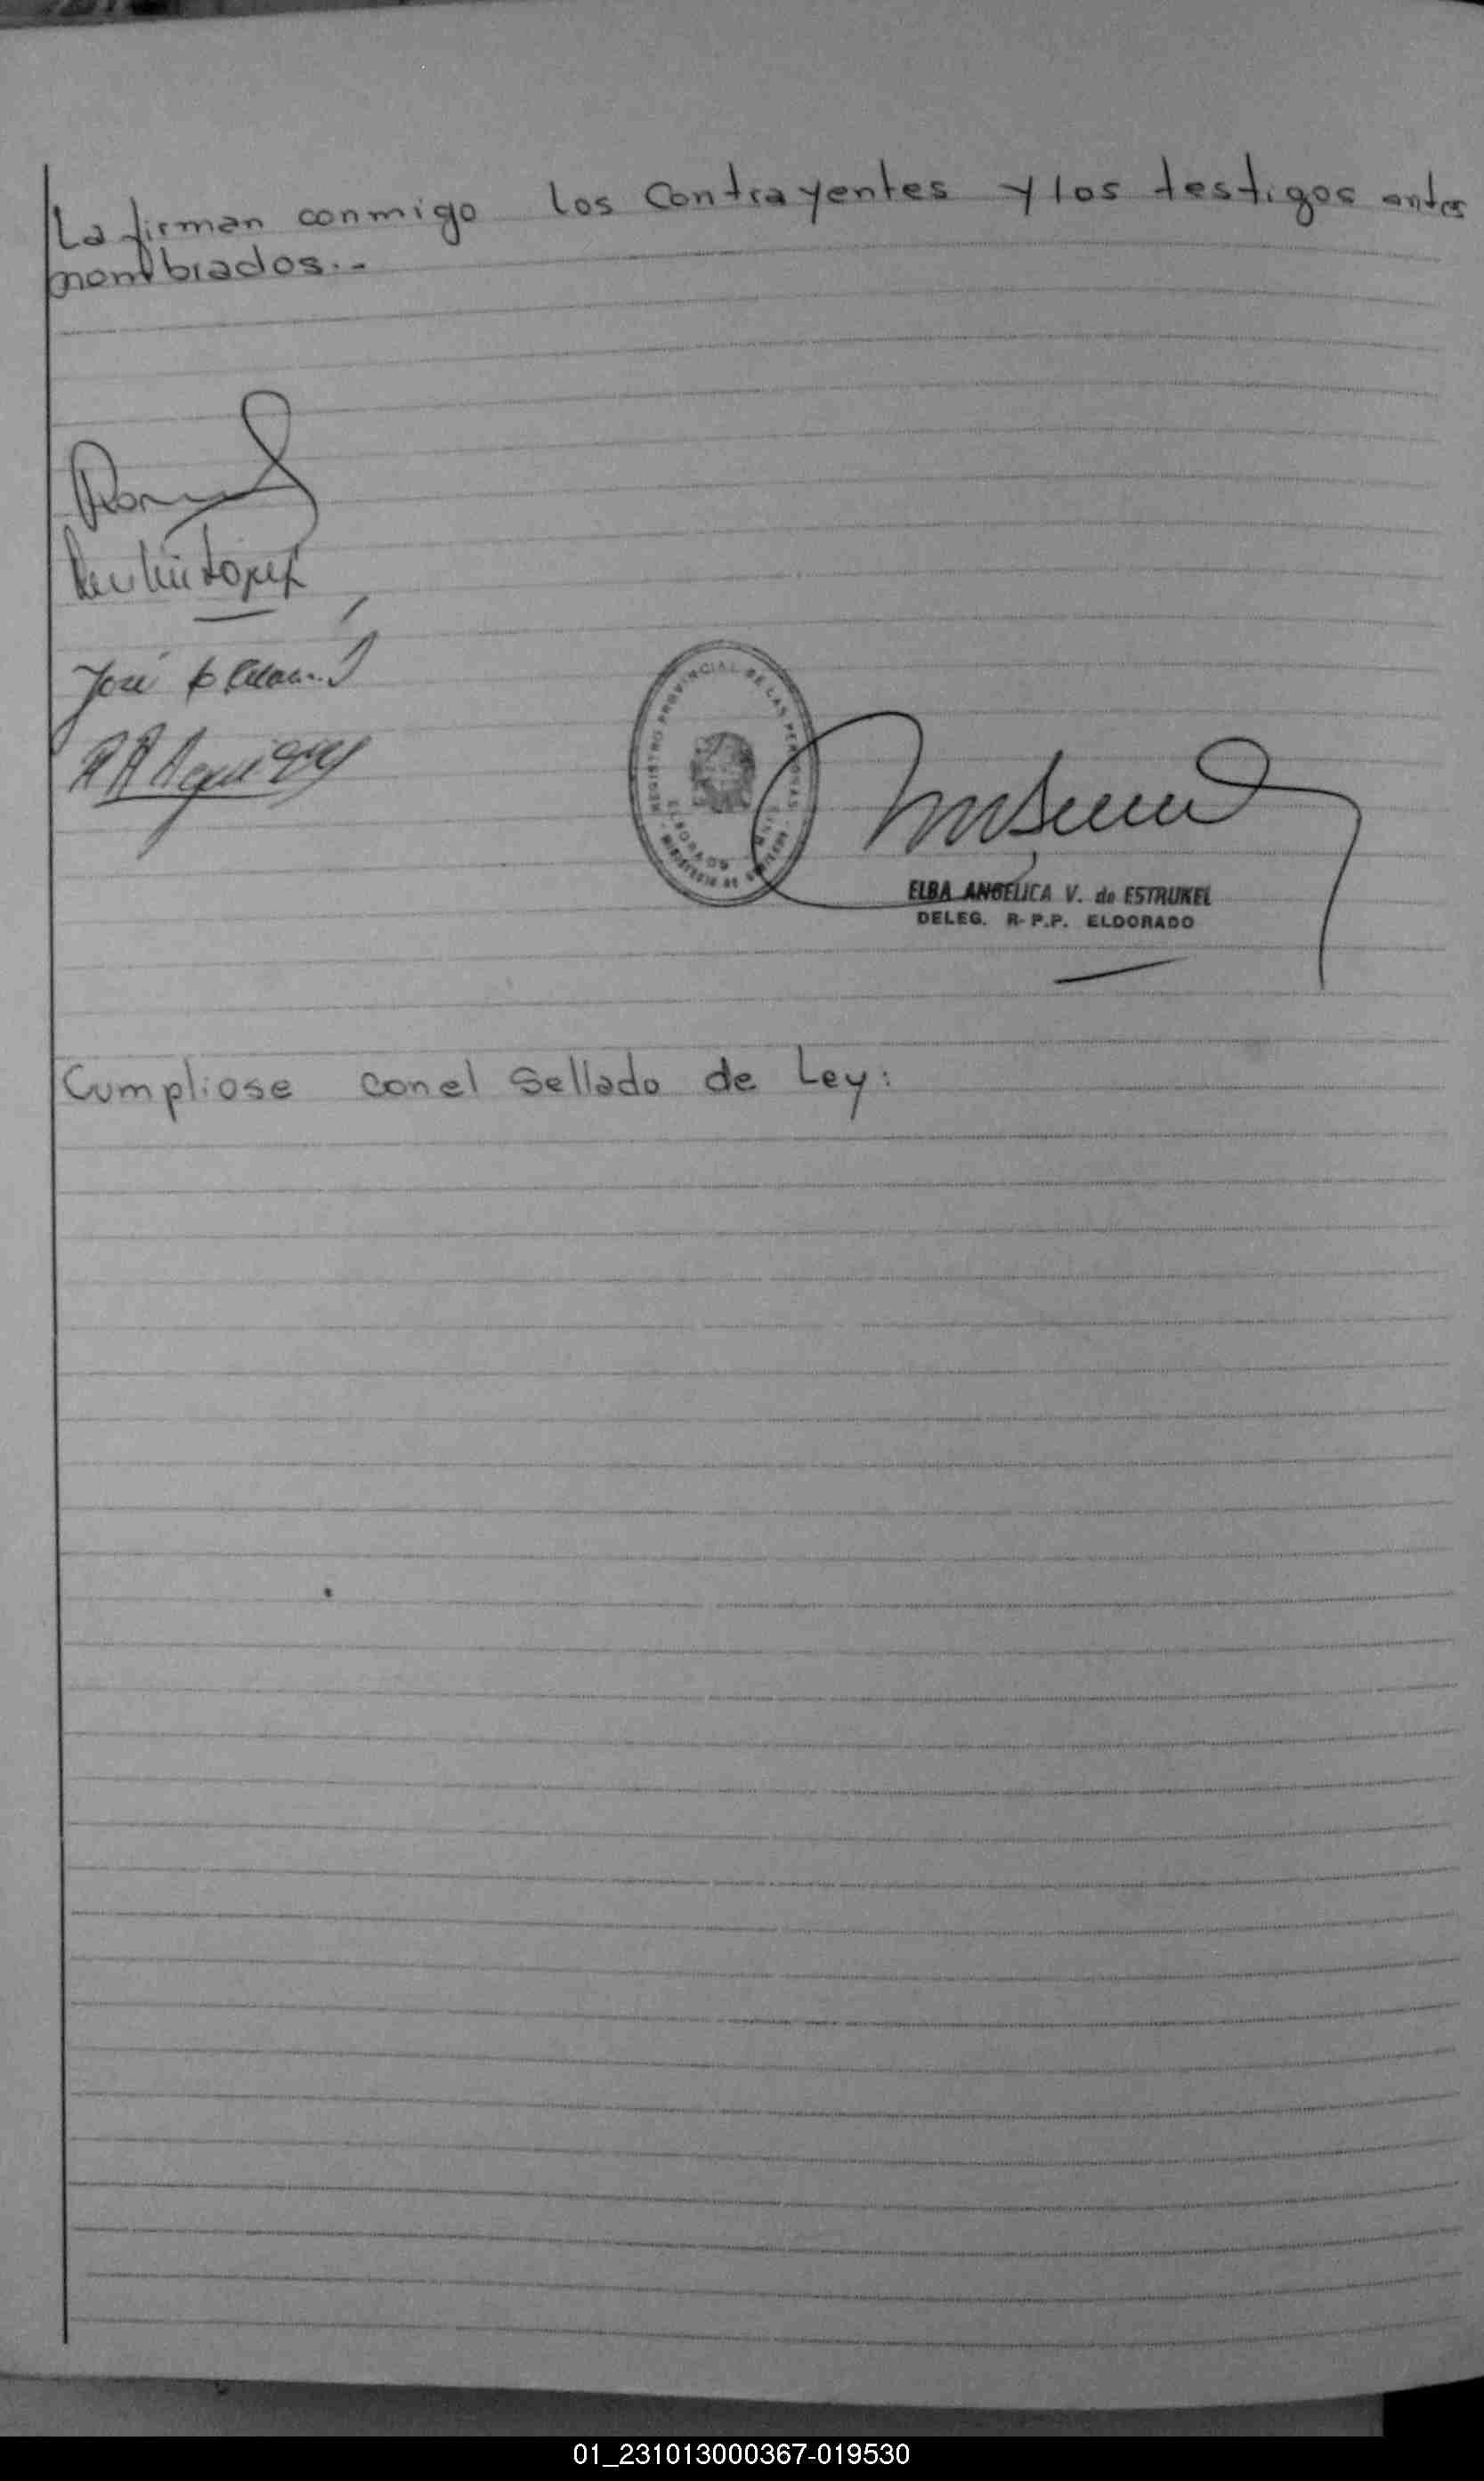 La firman conmigo los Contrayentes y los testigos antes
nombrados.-
López
José
REGISTRO PROVINCIAL DE LAS PERSONAS
ELDORADO
MINISTERIO DE
ELBA ANGELICA V. de ESTRUKEL
DELEG. R-P.P. ELDORADO
Cumpliose con el Sellado de Ley:
01_231013000367-019530